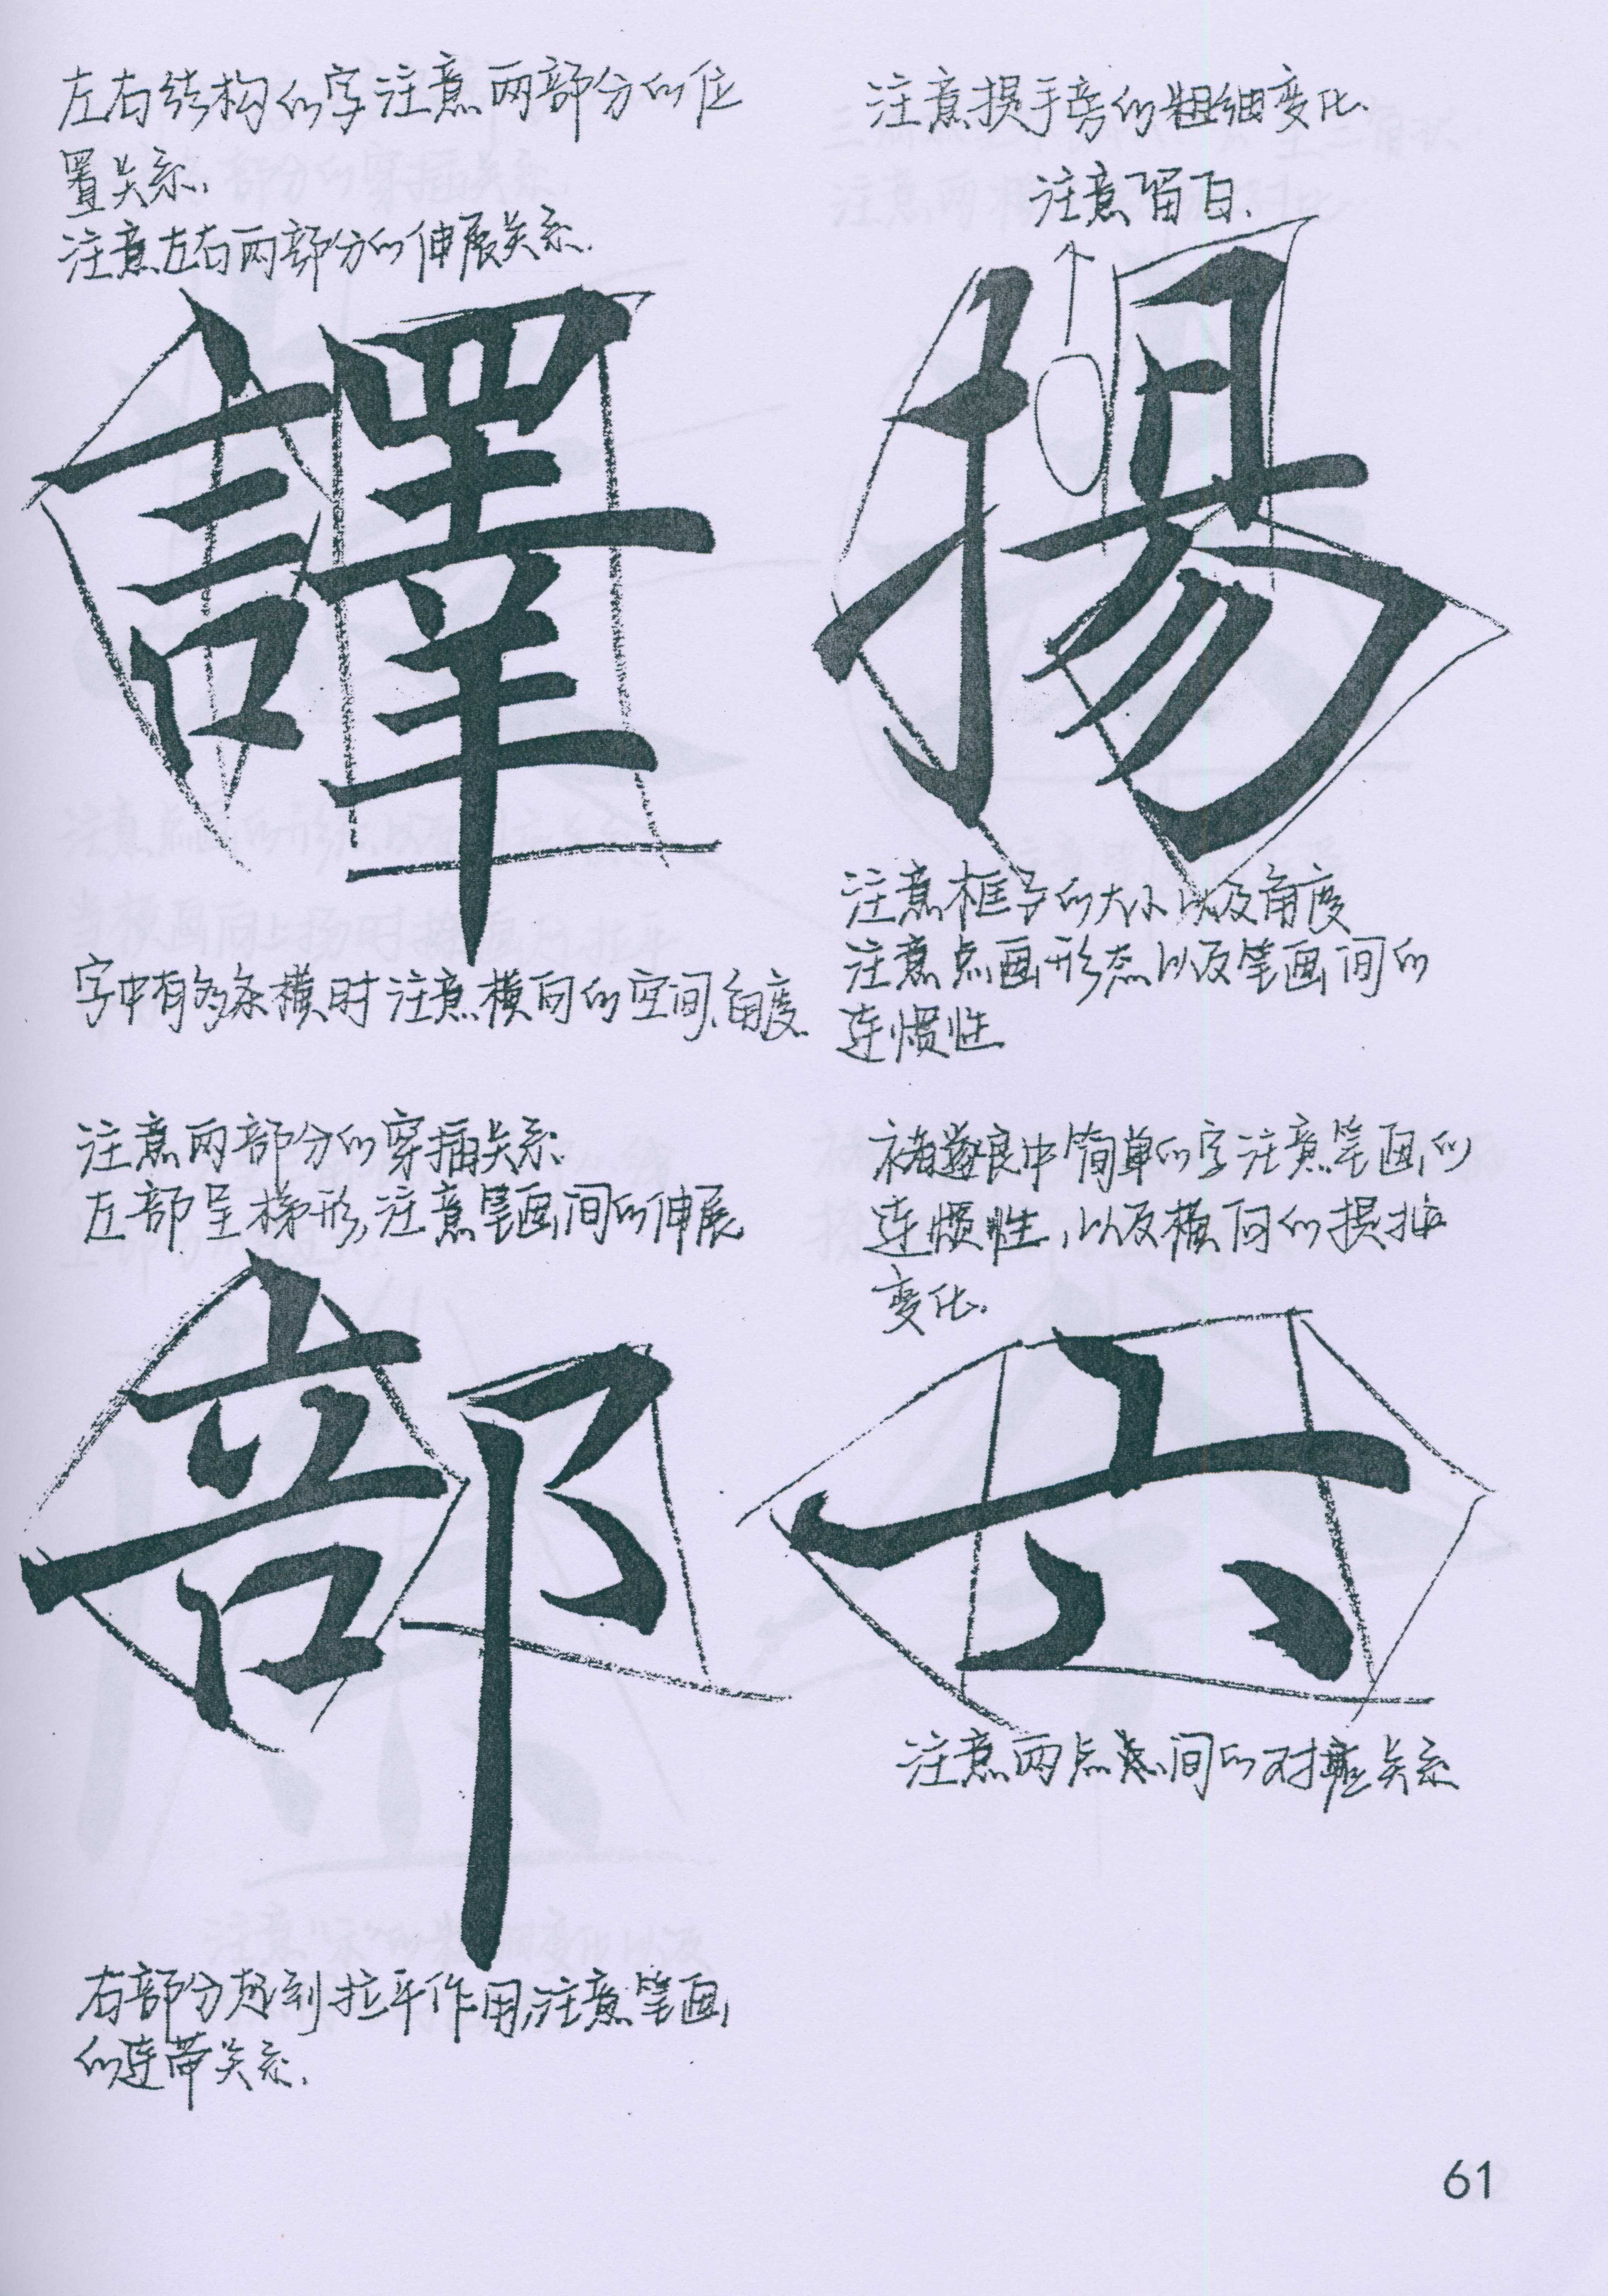 左右结构的字注意两部分的位
置关系.
注意左右两部分的伸展关系.
譯
字中有多条横时注意横向的空间、角度.
注意提手旁的粗细变化.
注意留白.
揚
注意框子的大小以及角度
注意点画形态以及笔画间的
连惯性
注意两部分的穿插关系.
左部呈梯形,注意笔画间的伸展
部
右部分起到拉平作用,注意笔画
的连带关系.
褚遂良中简单的字注意笔画的
连惯性,以及横向的提按
变化.
六
注意两点间的对应关系
61